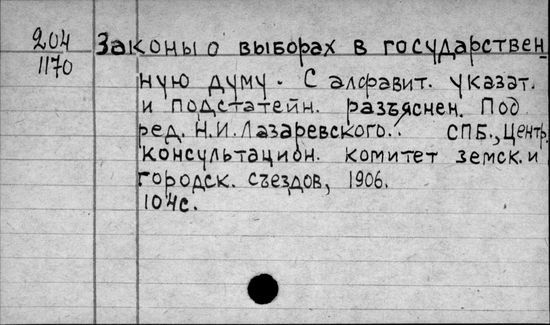 204
1170
Законы о выборах в государствен-
ную думу. С алфавит. указат.
и подстатейн. разъяснен. Под
ред. Н.И. Лазаревского. СПБ., Центр.
консультацион. комитет земск. и
городск. съездов, 1906.
104с.